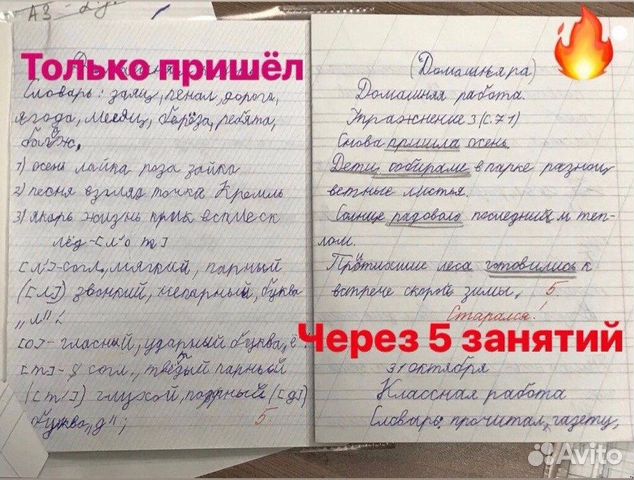 АЗ -
Только пришёл
Словарь: заяц, пенал, дорога,
ягода, месяц, берёза, ребята,
1) осень лайка роза зайка
2) песня взгляд точка Кремль
3) якорь жизнь прыж всплеск
лёд-[л'о т]
[л']-согл, мягкий, парный
([л]) звонкий, непарный, буква
„л";
[о]- гласный, ударный буква, ё.
[т]- согл., твёрдый парный
([т']) глухой, парный ([д])
буква „д";
5
(Домашняя ра)
Домашняя работа.
Упражнение 3 (с.71)
Снова пришла осень.
Дети собирале в парке разноц
ветные листья.
Солнце радовало последним теп-
лом.
Притихшие леса готовились к
встрече скорой зимы. 5
Старался!
Через 5 занятий
31 октября
Классная работа
Словарь: прочитал, газету,
Avito